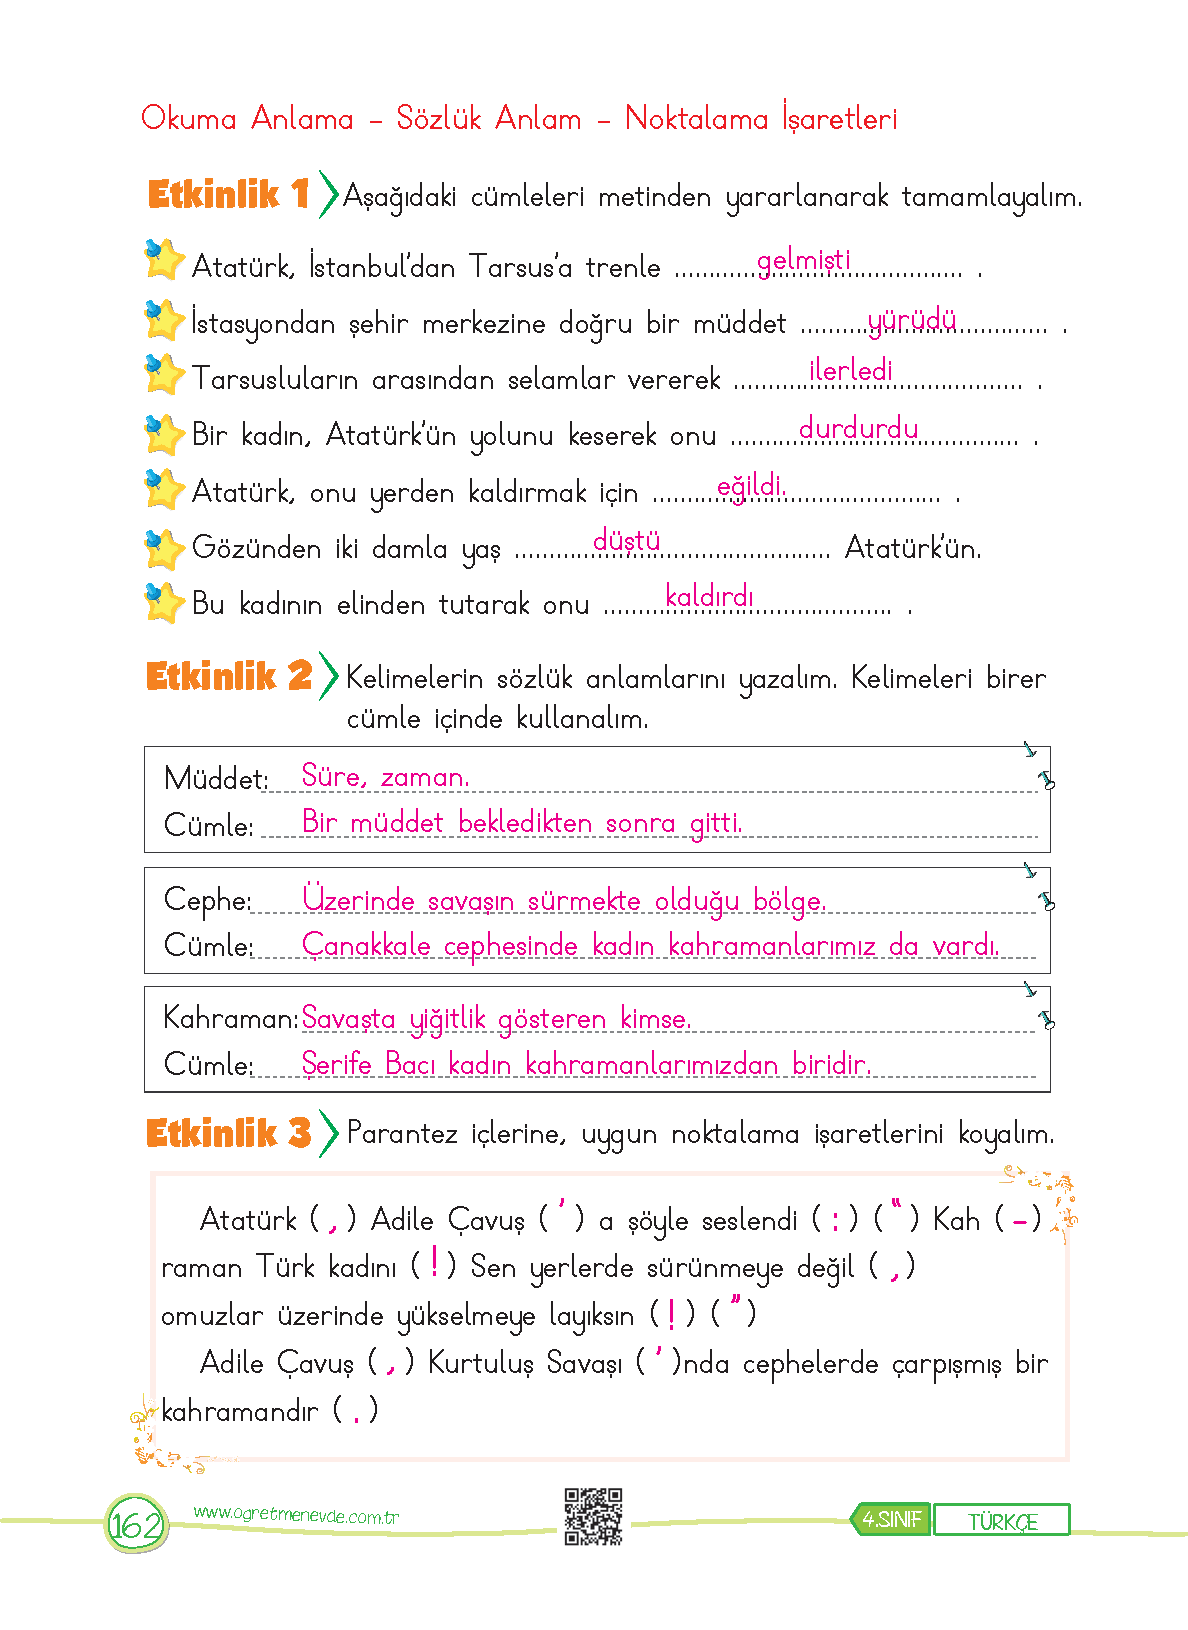 Okuma Anlama – Sözlük Anlam – Noktalama İşaretleri
Etkinlik 1 Aşağıdaki cümleleri metinden yararlanarak tamamlayalım.
Atatürk, İstanbul'dan Tarsus'a trenle ............gelmişti................ .
İstasyondan şehir merkezine doğru bir müddet ..........yürüdü............. .
Tarsusluların arasından selamlar vererek ...........ilerledi................... .
Bir kadın, Atatürk'ün yolunu keserek onu ..........durdurdu............... .
Atatürk, onu yerden kaldırmak için ..........eğildi....................... .
Gözünden iki damla yaş ...........düştü......................... Atatürk'ün.
Bu kadının elinden tutarak onu .........kaldırdı.................... .
Etkinlik 2 Kelimelerin sözlük anlamlarını yazalım. Kelimeleri birer
cümle içinde kullanalım.
Müddet: Süre, zaman.
Cümle: Bir müddet bekledikten sonra gitti.
Cephe: Üzerinde savaşın sürmekte olduğu bölge.
Cümle: Çanakkale cephesinde kadın kahramanlarımız da vardı.
Kahraman: Savaşta yiğitlik gösteren kimse.
Cümle: Şerife Bacı kadın kahramanlarımızdan biridir.
Etkinlik 3 Parantez içlerine, uygun noktalama işaretlerini koyalım.
Atatürk ( , ) Adile Çavuş ( ' ) a şöyle seslendi ( : ) ( “ ) Kah ( - )
raman Türk kadını ( ! ) Sen yerlerde sürünmeye değil ( , )
omuzlar üzerinde yükselmeye layıksın ( ! ) ( ” )
Adile Çavuş ( , ) Kurtuluş Savaşı ( ' )nda cephelerde çarpışmış bir
kahramandır ( . )
162 www.ogretmenevde.com.tr 4.SINIF TÜRKÇE